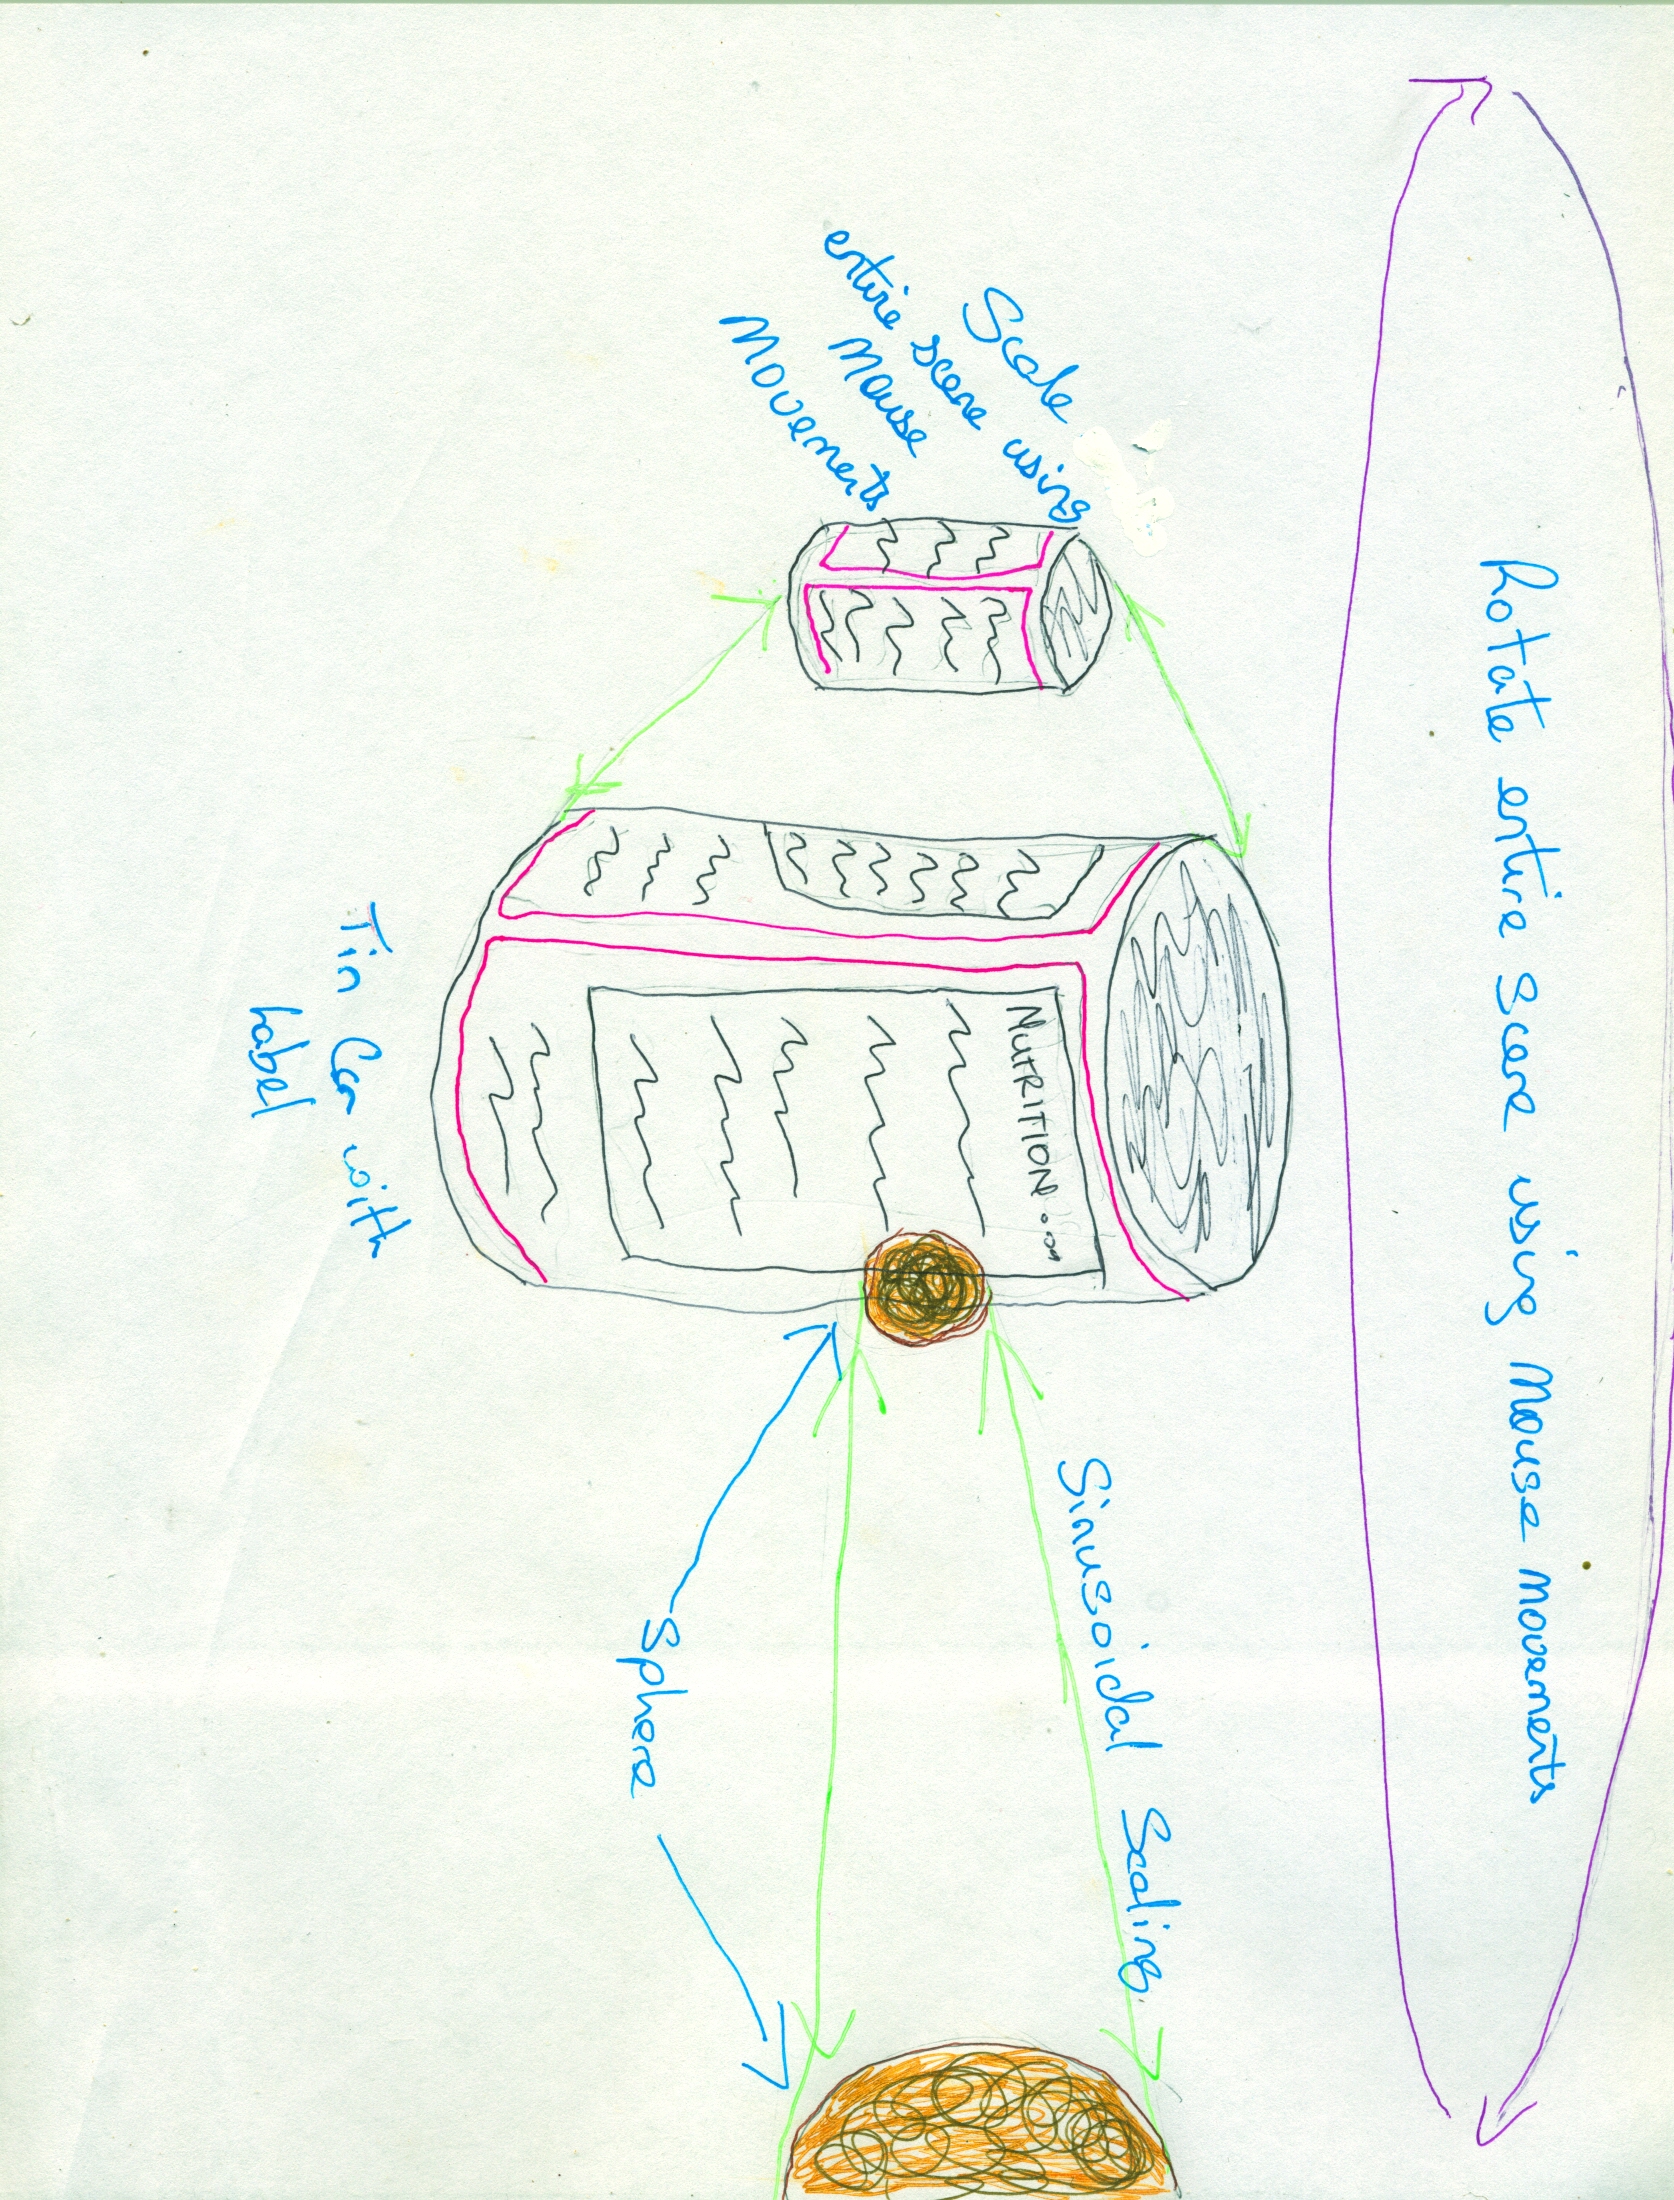 Rotate entire scene using Mouse Movements
Scale
entire scene using
Mouse
Movements
NUTRITION..on
Sinusoidal Scaling.
Sphere
Tin Can with
Label